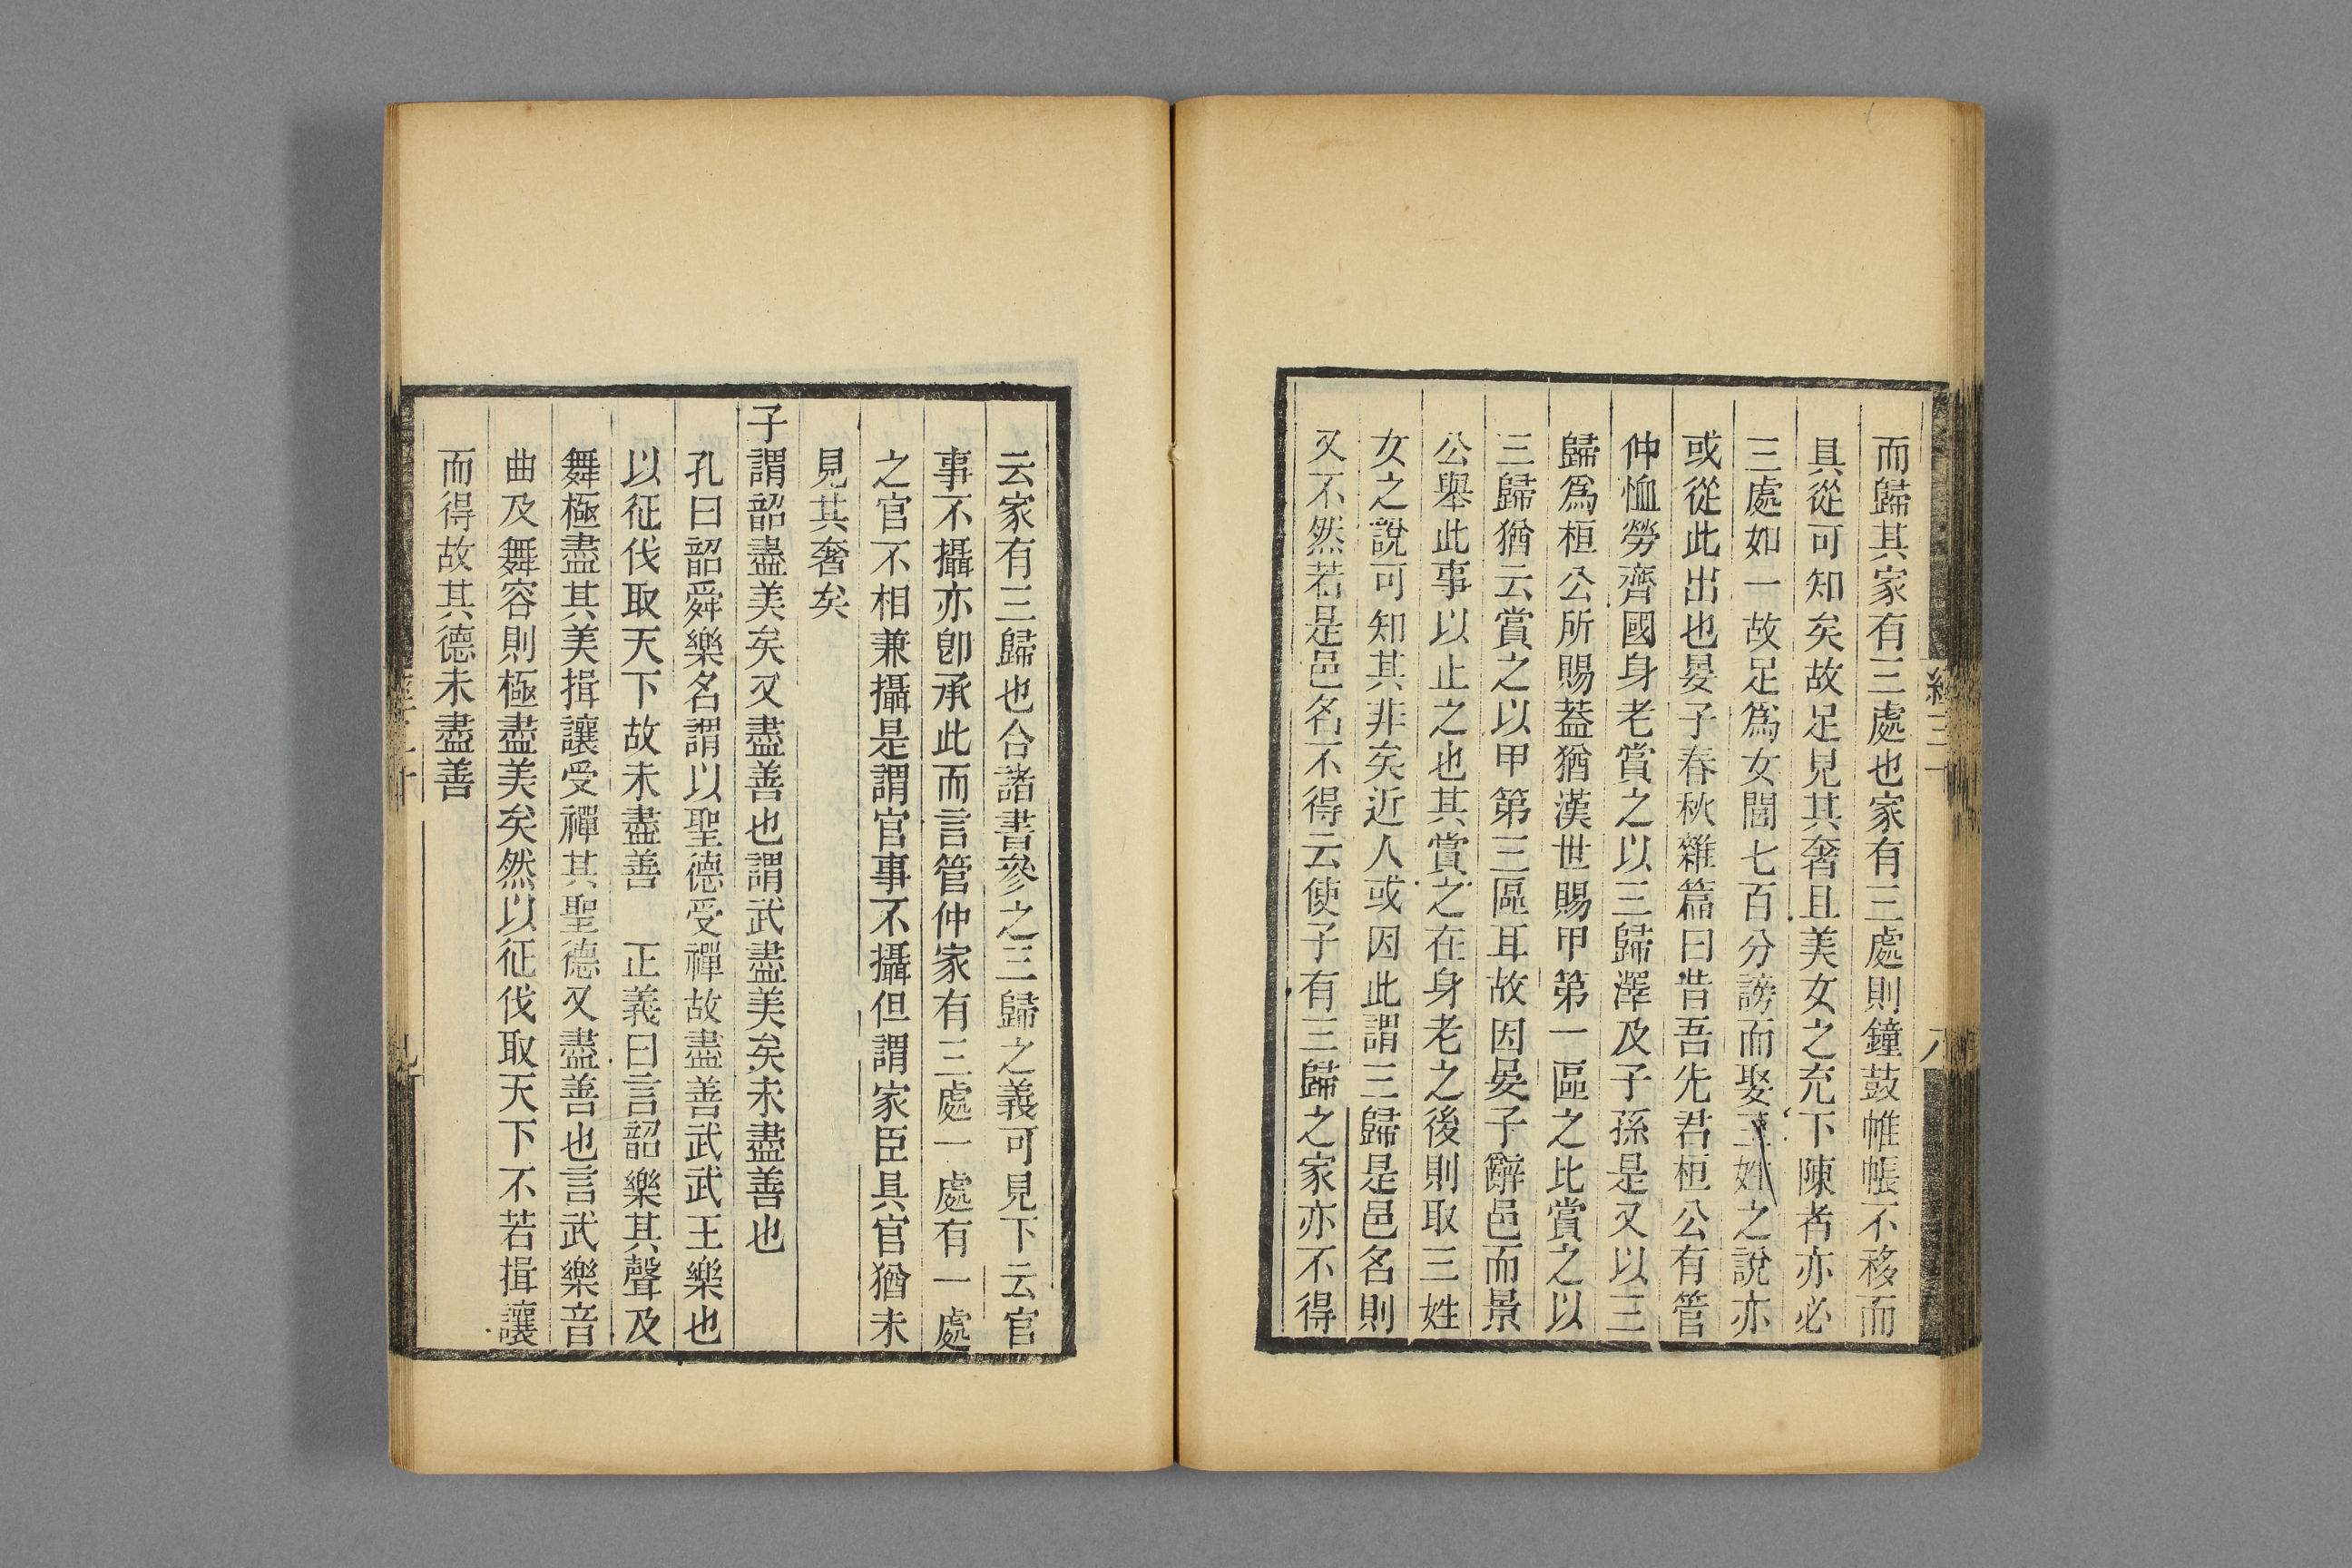 而歸其家有三處也家有三處則鐘鼓帷帳不移而
具從可知矣故足見其奢且美女之充下陳者亦必
三處如一故足爲女閭七百分謗而娶三姓之說亦
或從此出也晏子春秋雜篇曰昔吾先君桓公有管
仲恤勞齊國身老賞之以三歸澤及子孫是又以三
歸爲桓公所賜葢猶漢世賜甲第一區之比賞之以
三歸猶云賞之以甲第三區耳故因晏子辭邑而景
公舉此事以止之也其賞之在身老之後則取三姓
女之說可知其非矣近人或因此謂三歸是邑名則
又不然若是邑名不得云使子有三歸之家亦不得
云家有三歸也合諸書參之三歸之義可見下云官
事不攝亦卽承此而言管仲家有三處一處有一處
之官不相兼攝是謂官事不攝但謂家臣具官猶未
見其奢矣
子謂韶盡美矣又盡善也謂武盡美矣未盡善也
孔曰韶舜樂名謂以聖德受禪故盡善武武王樂也
以征伐取天下故未盡善　正義曰言韶樂其聲及
舞極盡其美揖讓受禪其聖德又盡善也言武樂音
曲及舞容則極盡美矣然以征伐取天下不若揖讓
而得故其德未盡善